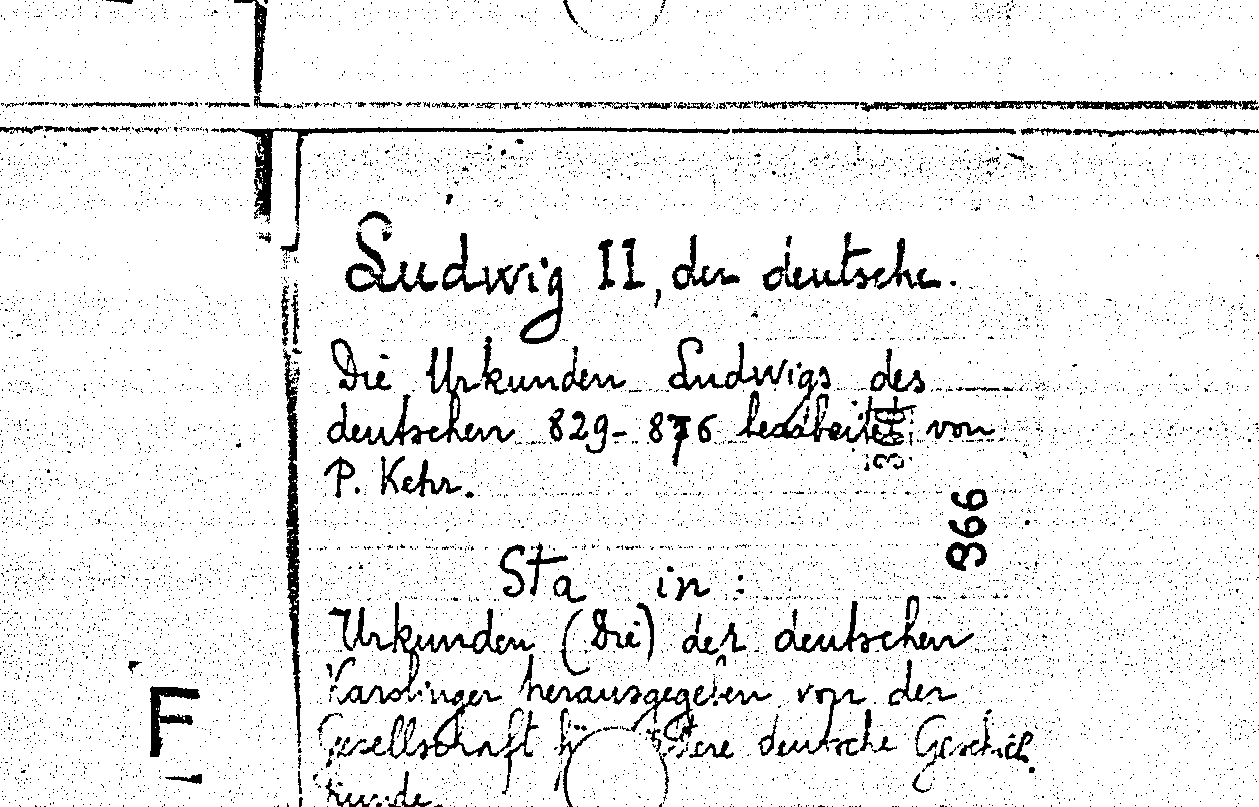 Ludwig II, der deutsche.
Die Urkunden Ludwigs des
deutschen 829-876 bearbeitet von
P. Kehr.
366
Sta in:
Urkunden (Die) der deutschen
Karolinger herausgegeben von der
F
Gesellschaft für ältere deutsche Geschichts
kunde.